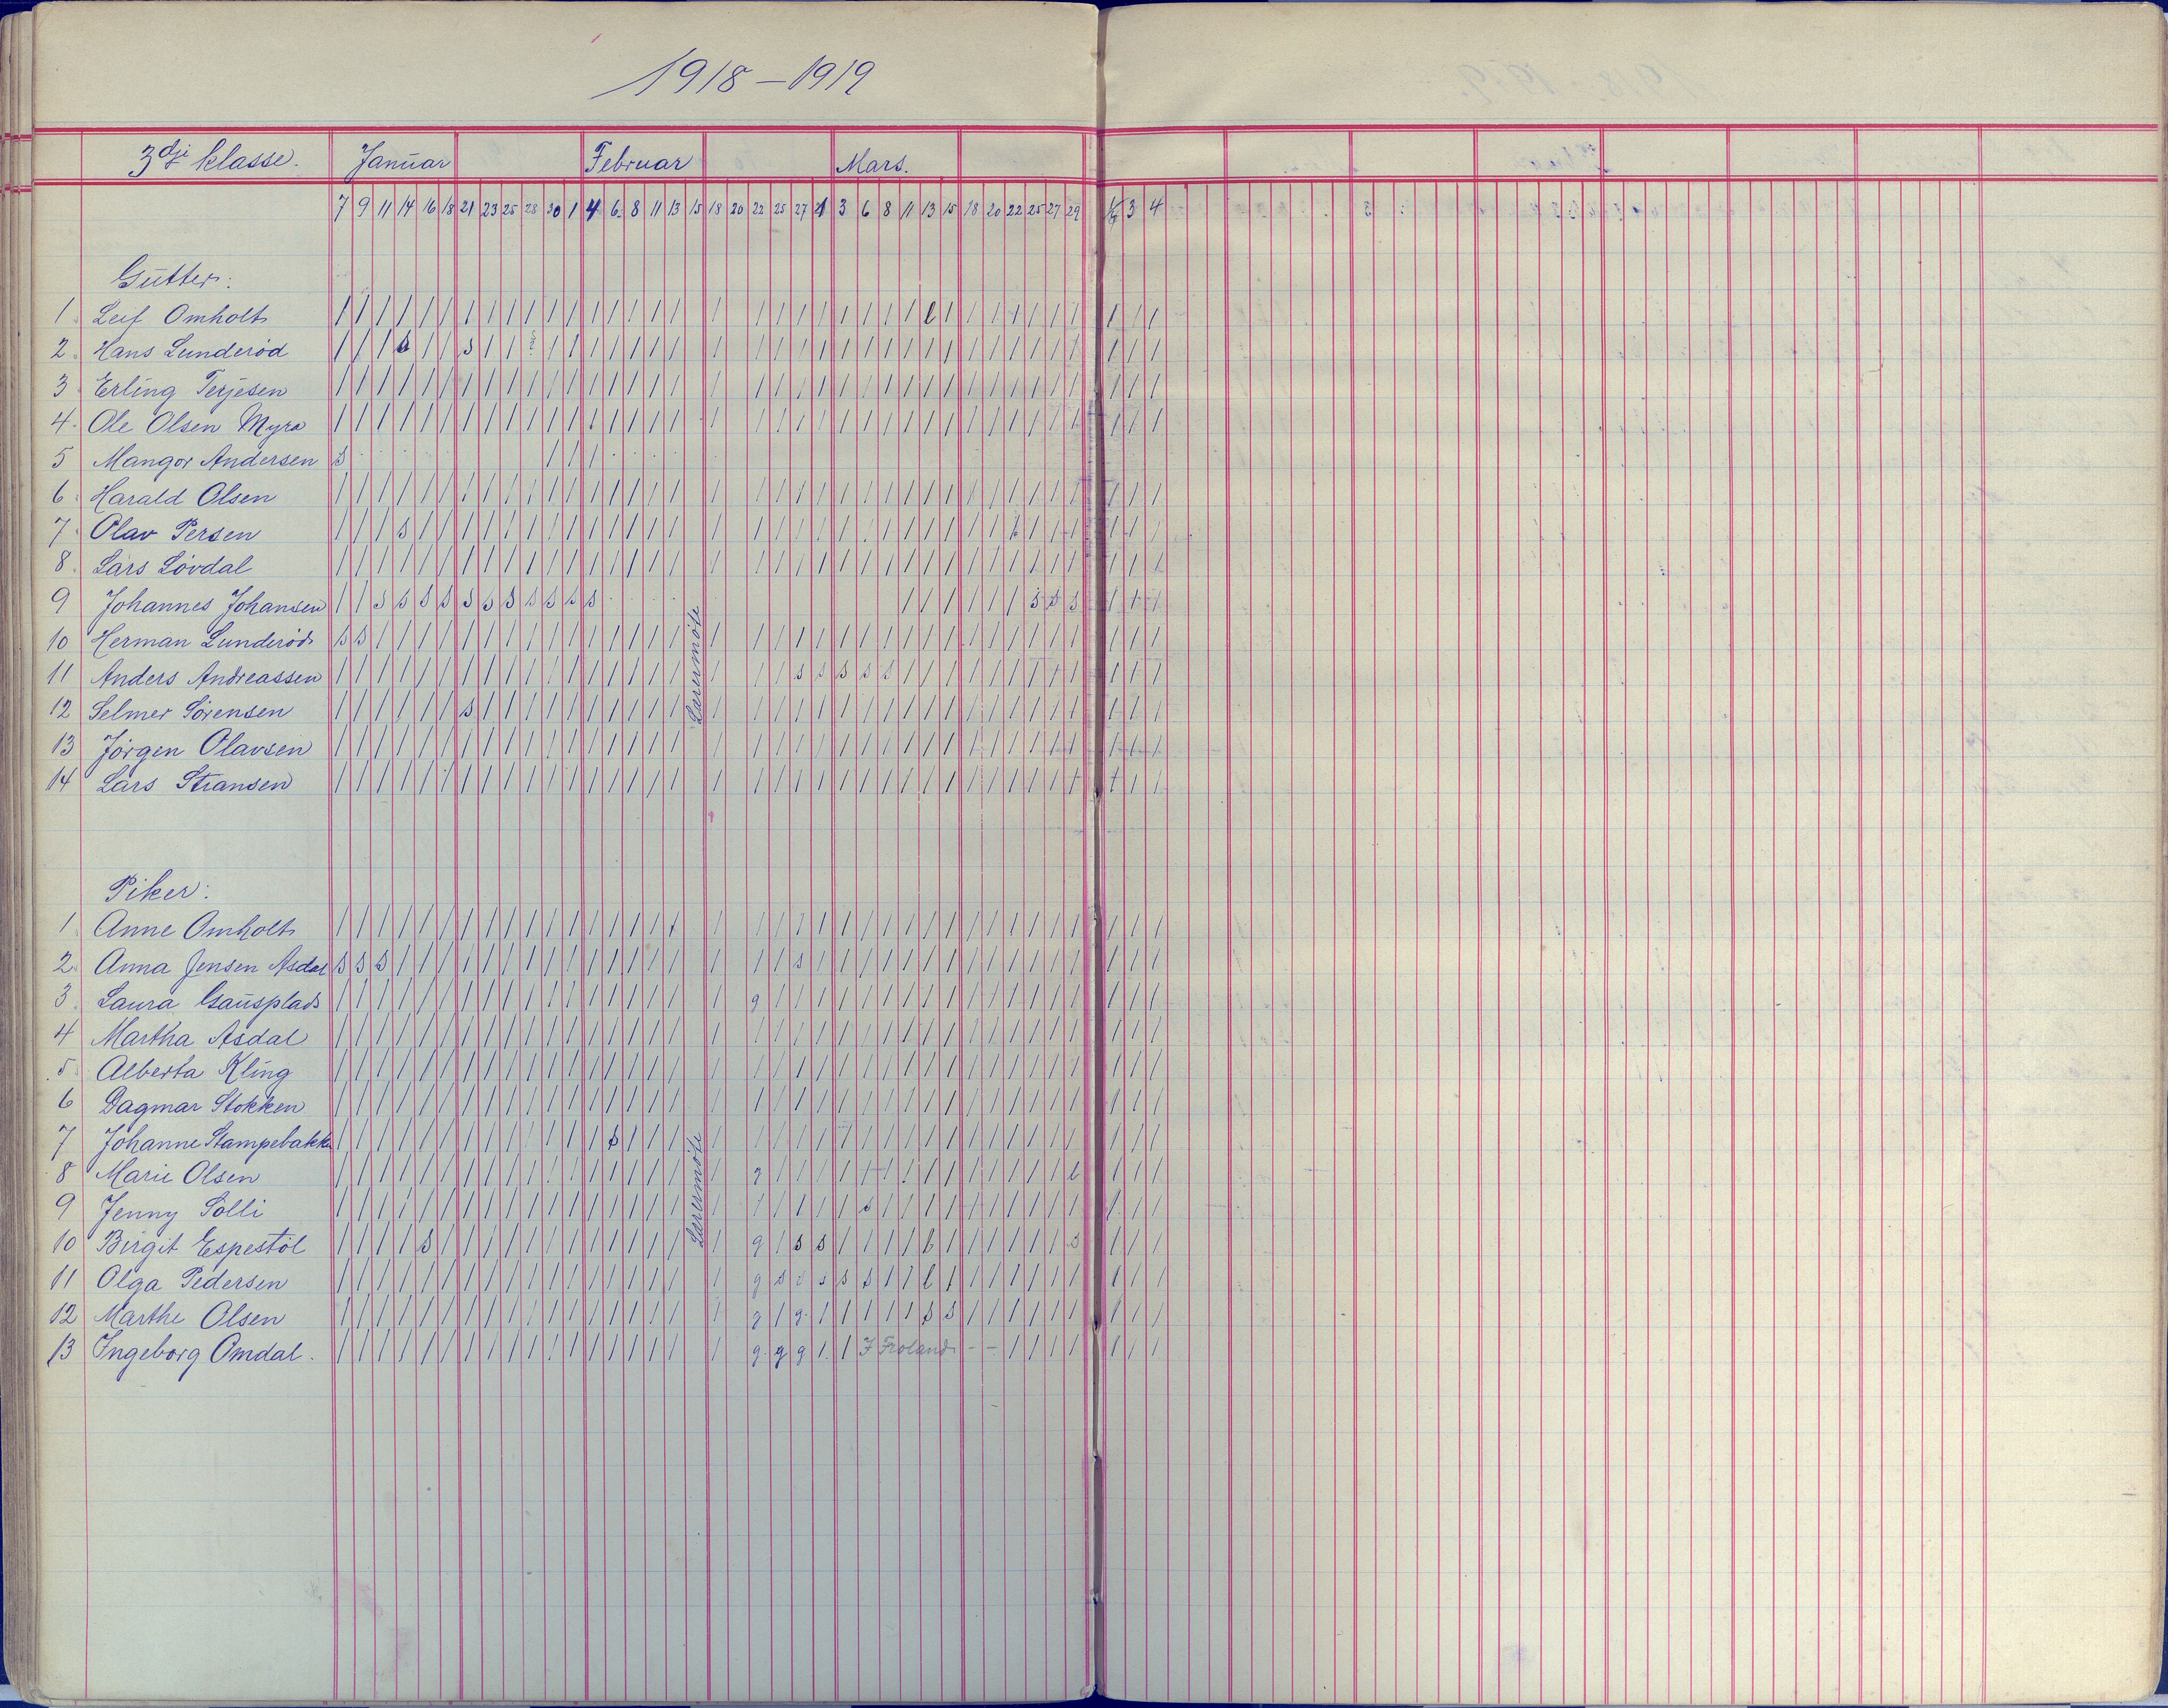 1918–1919
3dje klasse. Januar Februar Mars.
7 9 11 14 16 18 21 23 25 28 30 1 4 6 8 11 13 15 18 20 22 25 27 1 3 6 8 11 13 15 18 20 22 25 27 29 1/4 3 4
Gutter:
1. Leif Omholt / / / / / / / / / / / / / / / / / / / / / / / / / / / l / / / / / / / / / /
2. Hans Lunderöd / / / s / / s / / s / / / / / / / / / / / / / / / / / / / / / / / / / / / /
3. Erling Terjesen
4. Ole Olsen Myra
5 Mangor Andersen s / / /
6. Harald Olsen
7. Olav Persen / / / s
8. Lars Lövdal
9 Johannes Johansen / / s s s s s s s s s s s / / / / / / / s s s / / /
10 Herman Lunderöd s s
11 Anders Andreassen s s s s s
12 Selmer Sörensen s
13 Jörgen Olavsen
14 Lars Stiansen
Lærermöte
Piker:
1. Anne Omholt
2. Anna Jensen Asdal s s s / s
3. Laura Gausplads g
4 Martha Asdal
5. Alberta Kling
6 Dagmar Stokken
7 Johanne Stampebakken s
8 Marie Olsen g l
9 Jenny Solli s
10 Birgit Espestöl s g / s s l s
11 Olga Pedersen g s s s s s / / l
12 Marthe Olsen g / g s s
13 Ingeborg Omdal. g g g / / I Froland - -
Lærermöte